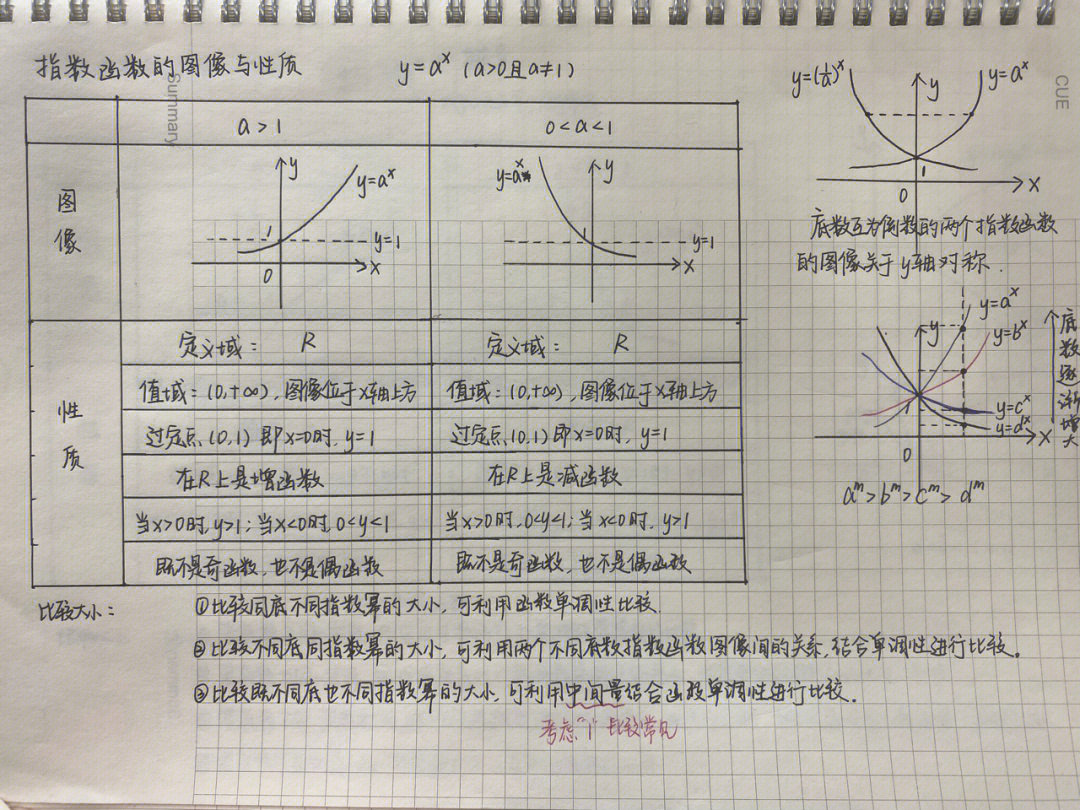 指数函数的图像与性质 y=aˣ (a>0且a≠1)
Summary
CUE
a>1 0<a<1
图像
y
y=aˣ
1
y=1
0
x
y
y=aˣ
1
y=1
x
性质
定义域: R 定义域: R
值域:(0,+∞),图像位于x轴上方 值域:(0,+∞),图像位于x轴上方
过定点(0,1)即x=0时,y=1 过定点(0,1)即x=0时,y=1
在R上是增函数 在R上是减函数
当x>0时,y>1;当x<0时,0<y<1 当x>0时,0<y<1;当x<0时,y>1
既不是奇函数,也不是偶函数 既不是奇函数,也不是偶函数
y=(1/a)ˣ y y=aˣ
1
0 x
底数互为倒数的两个指数函数
的图像关于y轴对称.
y=aˣ
y
y=bˣ
1
y=cˣ
y=dˣ
x
0
底数逐渐增大
aᵐ>bᵐ>cᵐ>dᵐ
比较大小: ①比较同底不同指数幂的大小,可利用函数单调性比较.
②比较不同底同指数幂的大小,可利用两个不同底数指数函数图像间的关系,结合单调性进行比较。
③比较既不同底也不同指数幂的大小,可利用中间量结合函数单调性进行比较.
考虑"1"比较常见